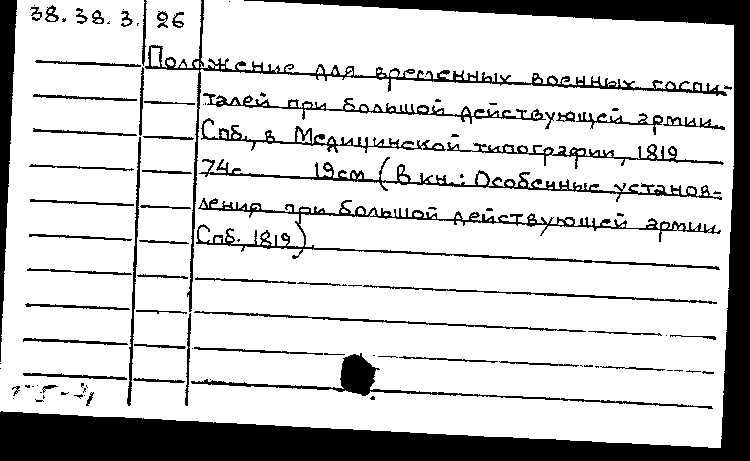 38.38.3. 26
Положение для временных военных госпи-
талей при большой действующей армии.
Спб., в Медицинской типографии, 1819
74с 19см (В кн.: Особенные установ-
ления при большой действующей армии.
Спб., 1819).